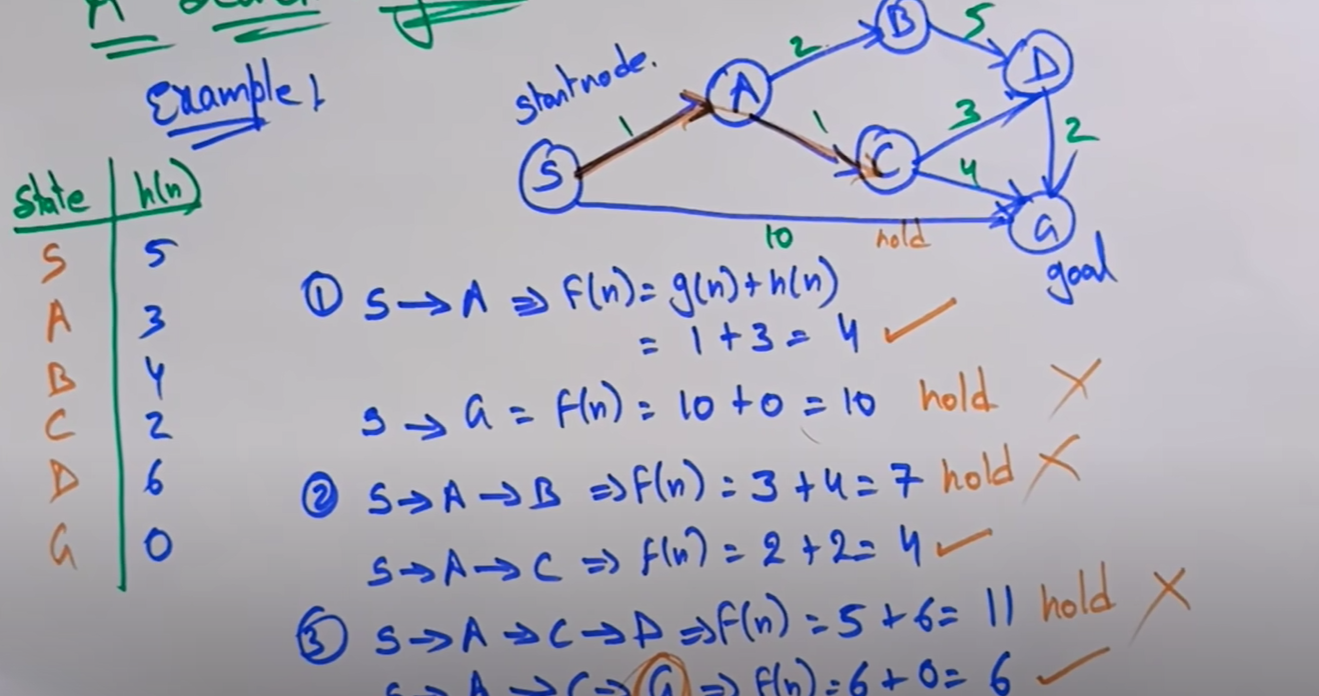 Example 1
State h(n)
S 5
A 3
B 4
C 2
D 6
G 0
start node.
S
1
A
2
B
5
D
1
C
3
4
2
10
hold
G
goal
① S → A ⇒ f(n) = g(n) + h(n)
= 1 + 3 = 4 ✓
S → G = f(n) = 10 + 0 = 10 hold ✗
② S → A → B ⇒ f(n) = 3 + 4 = 7 hold ✗
S → A → C ⇒ f(n) = 2 + 2 = 4 ✓
③ S → A → C → D ⇒ f(n) = 5 + 6 = 11 hold ✗
S → A → C → G ⇒ f(n) = 6 + 0 = 6 ✓